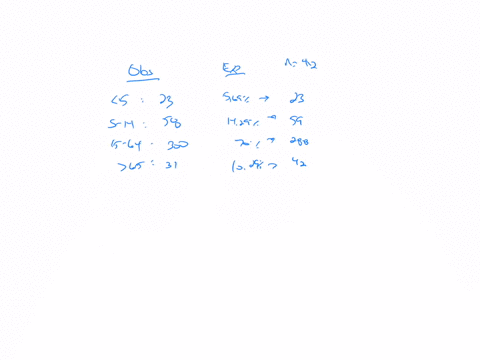 Obs Exp n=412
<5 : 23 5.65% → 23
5-14 : 58 14.25% → 59
15-64 : 300 70% → 288
>65 : 31 10.2% → 42